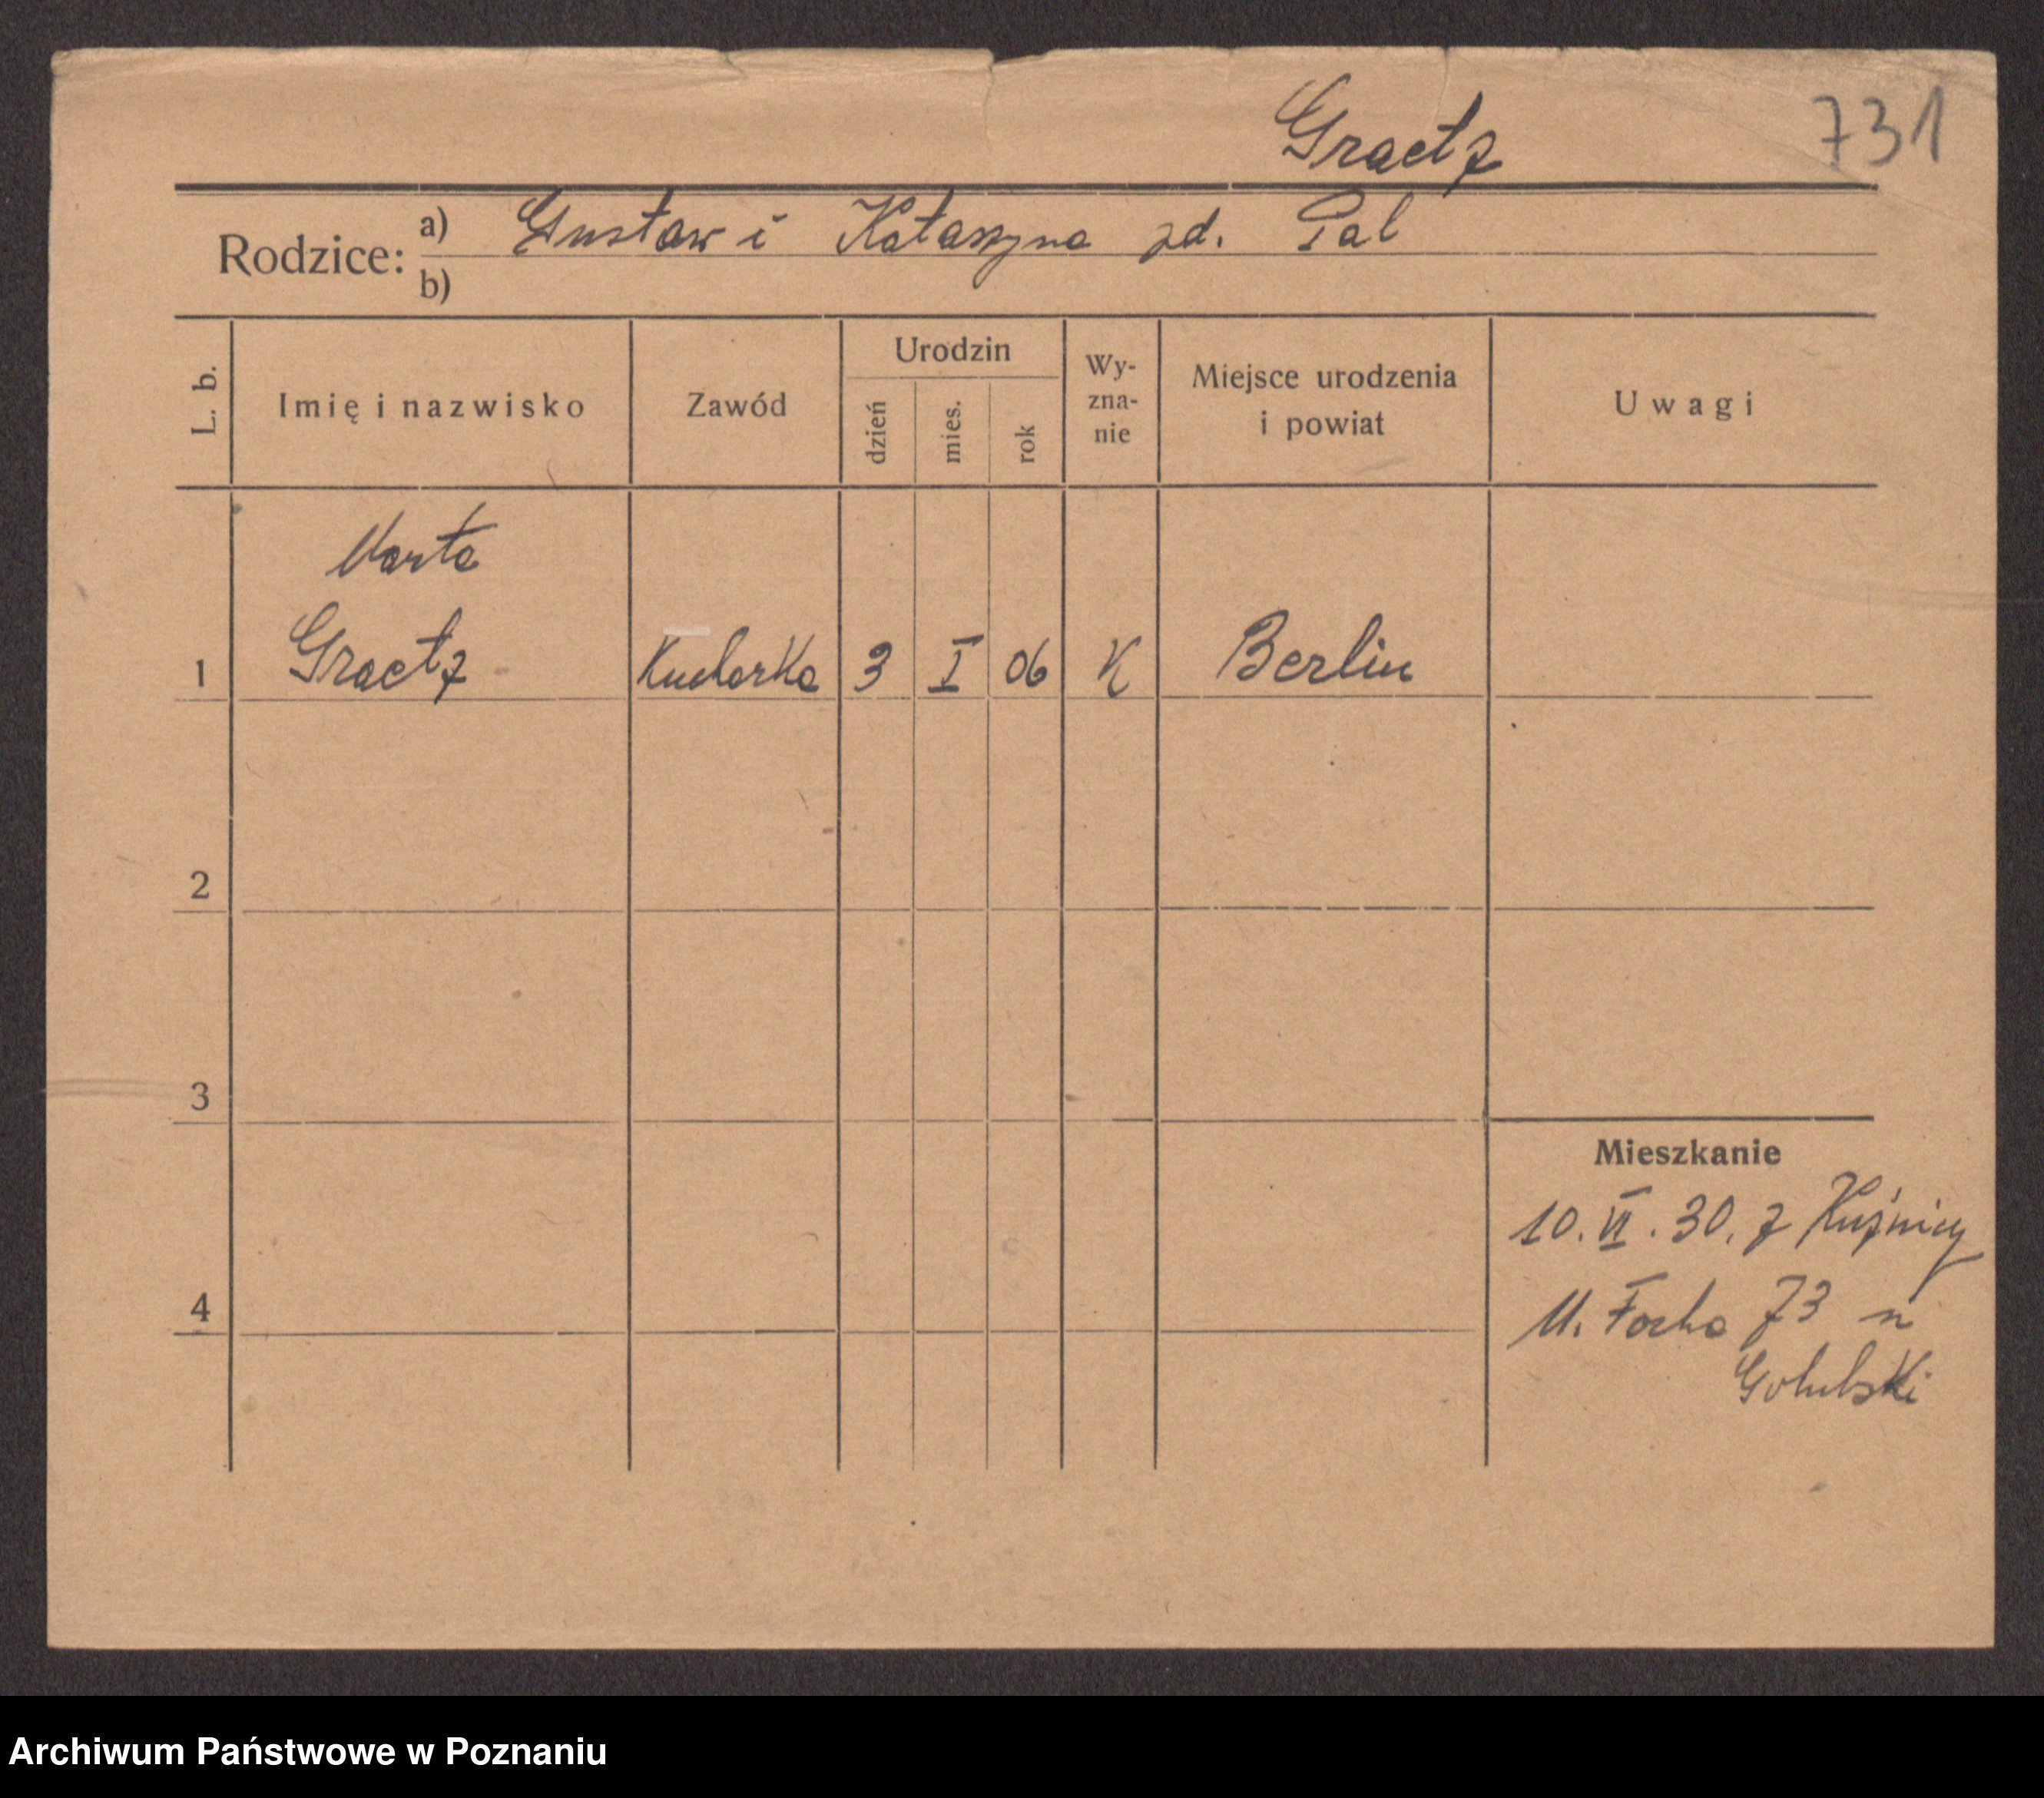 Graetz 731
Rodzice: a) Gustaw i Katarzyna zd. Pal
b)
L. b. Imię i nazwisko Zawód Urodzin dzień mies. rok Wy-zna-nie Miejsce urodzenia i powiat Uwagi
Marta
1 Graetz Kucharka 3 I 06 K Berlin
2
3
Mieszkanie
10. VI. 30. z Kuźnicy
4 M. Focha 73 u
Golubski
Archiwum Państwowe w Poznaniu